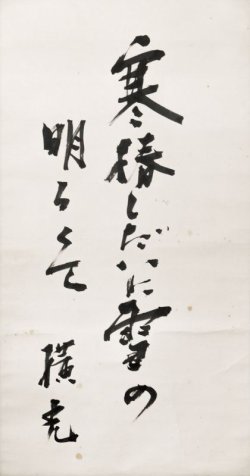 寒椿しだいに雪の
明るくて
横光